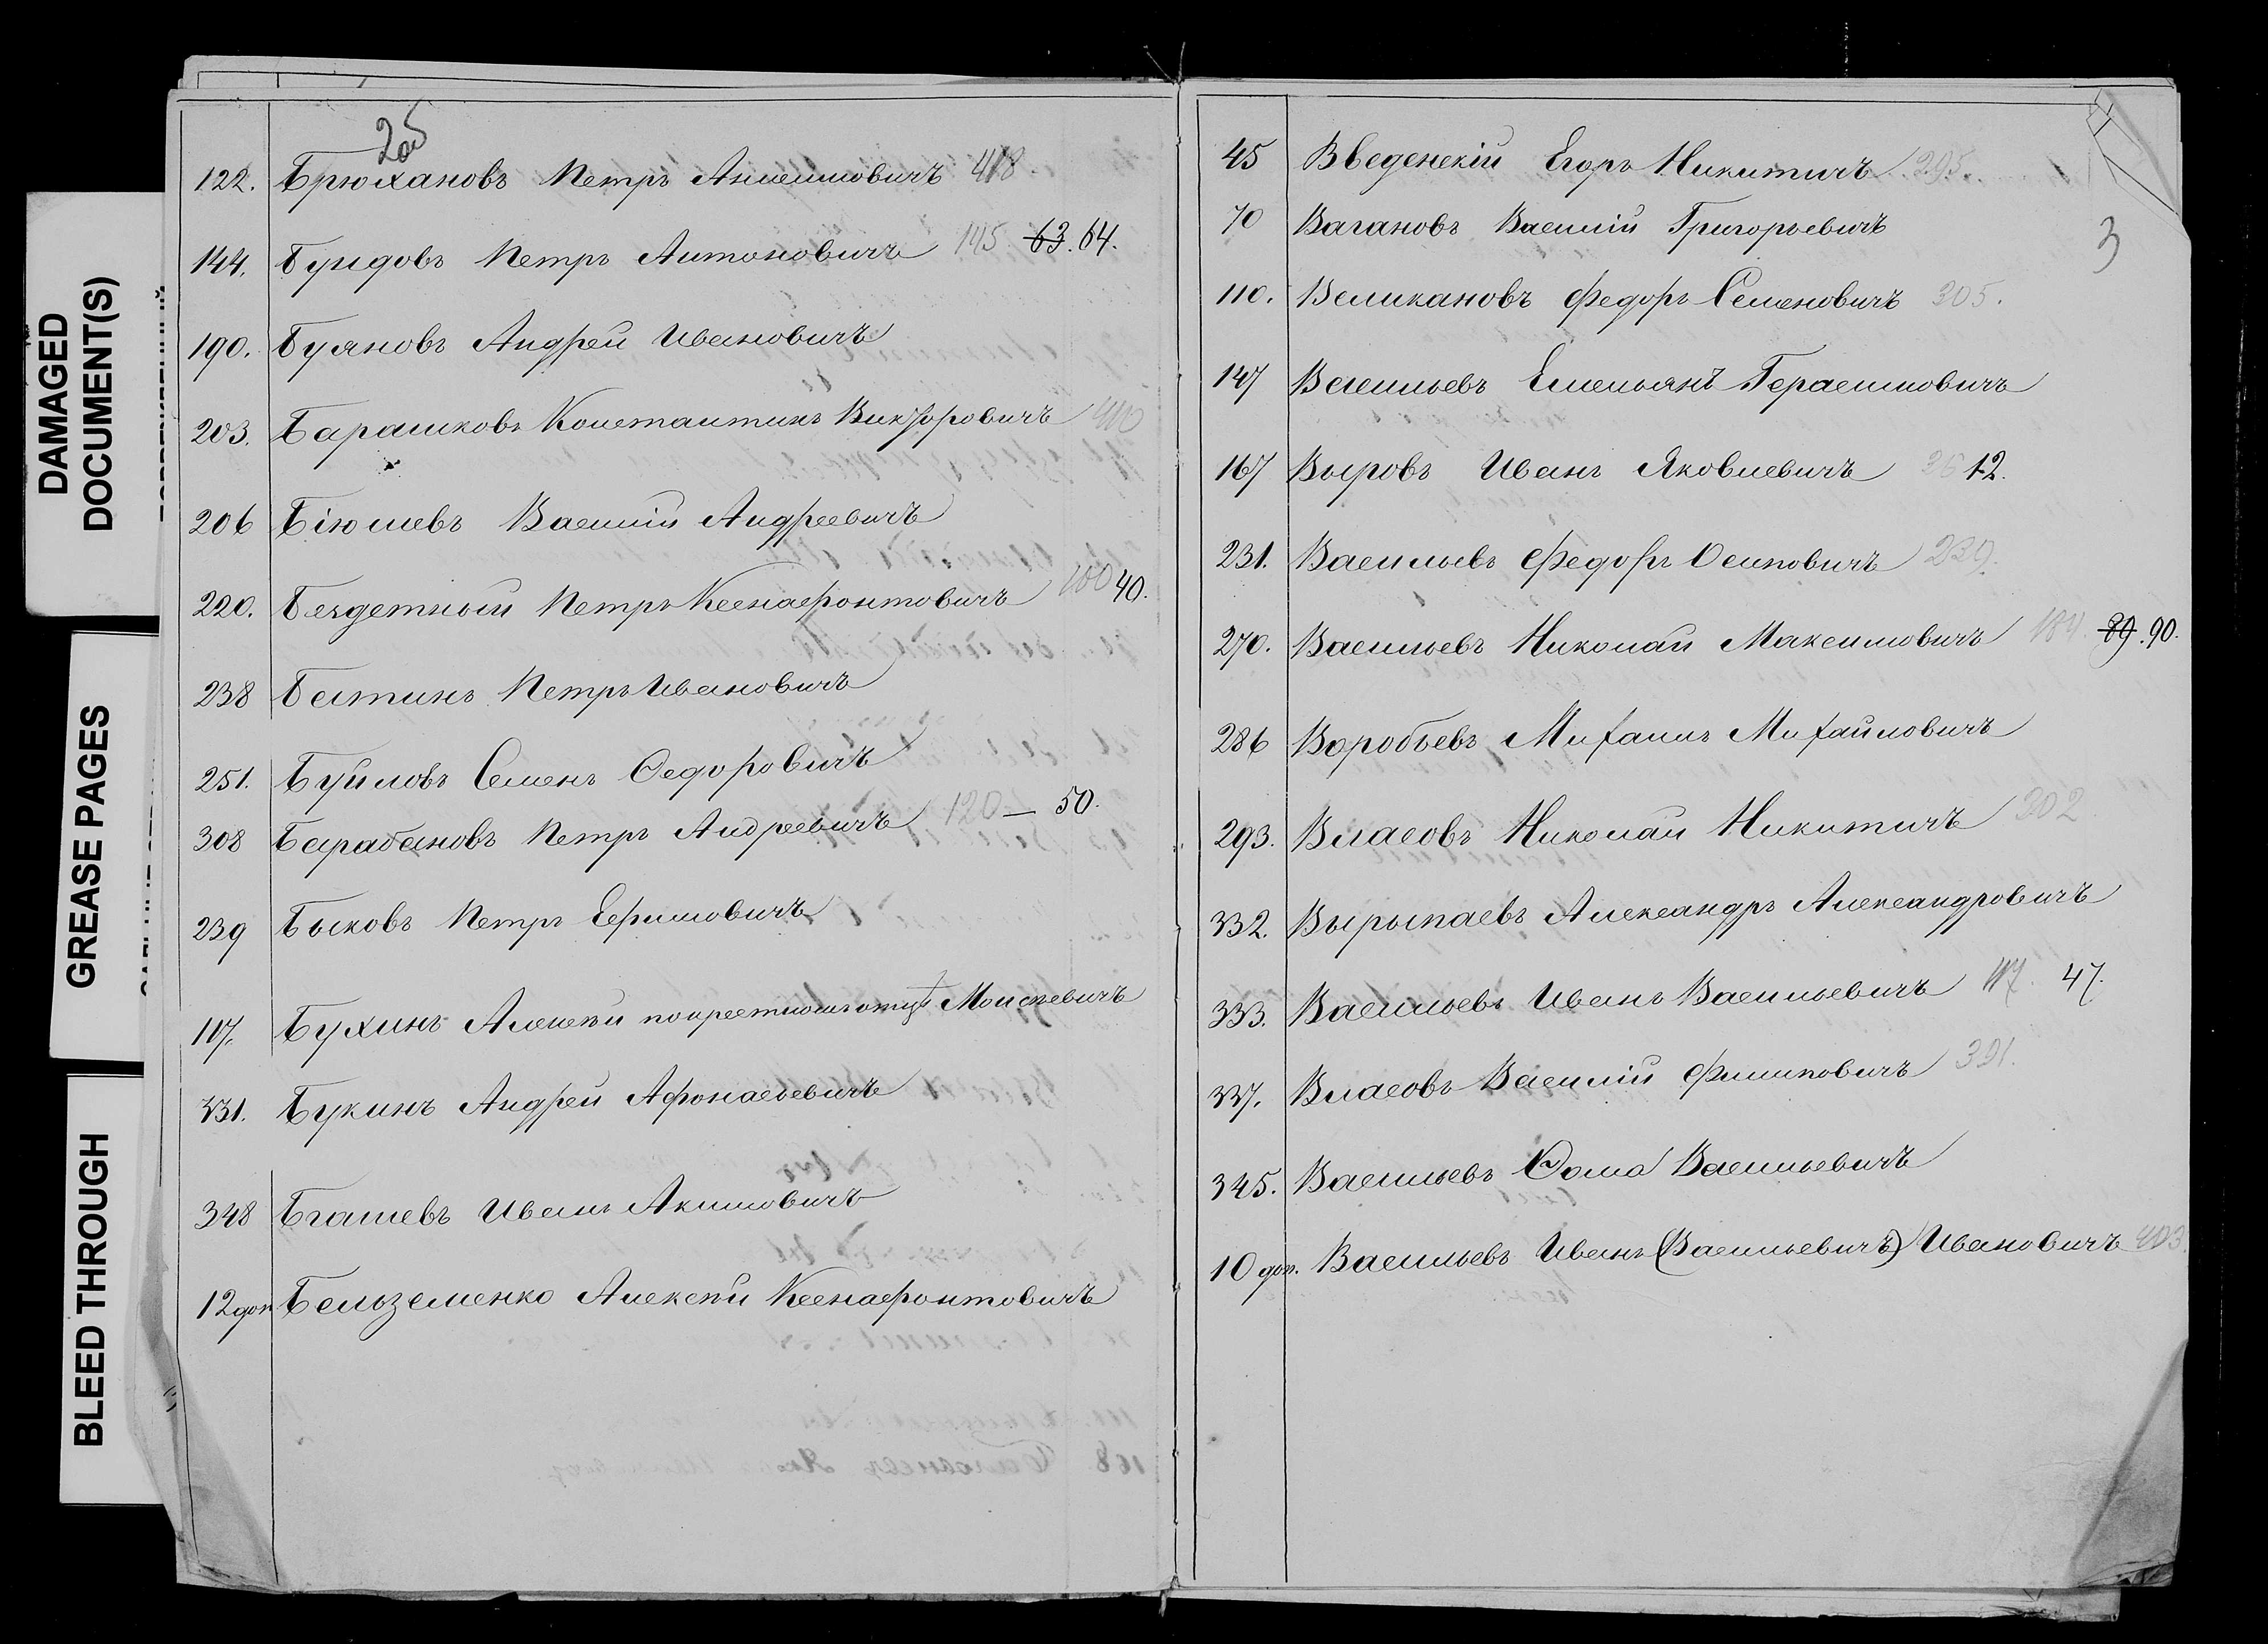 DAMAGED
DOCUMENT(S)
GREASE PAGES
BLEED THROUGH
25
122. Брюхановъ Петръ Анисимовичъ 418.
144. Бундовъ Петръ Антоновичъ 145 63. 64.
190. Буяновъ Андрей Ивановичъ
203. Барашковъ Константинъ Викторовичъ 400
206 Бѣюшевъ Василій Андреевичъ
220. Бездетный Петръ Ксенафонтовичъ 100 40.
238 Бастинъ Петръ Ивановичъ
251. Буйловъ Семенъ Ѳедоровичъ
308 Барабановъ Петръ Андреевичъ 120 — 50.
239 Быковъ Петръ Ефимовичъ
117. Бухинъ Алексѣй по крестному отцу Моисеевичъ
331. Букинъ Андрей Афонасьевичъ
348 Богашевъ Иванъ Акимовичъ
12 доп Бельземенко Алексѣй Ксенафонтовичъ
3
45 Введенскій Егоръ Никитичъ 295.
70 Вагановъ Василій Григорьевичъ
110. Великановъ Федоръ Семеновичъ 305.
147 Васильевъ Емельянъ Герасимовичъ
167 Выровъ Иванъ Яковлевичъ 36 12.
231. Васильевъ Федоръ Осиповичъ 239.
270. Васильевъ Николай Максимовичъ 184. 89. 90.
286 Воробьевъ Михаилъ Михайловичъ
293. Власовъ Николай Никитичъ 302
332. Вырыпаевъ Александръ Александровичъ
333. Васильевъ Иванъ Васильевичъ 117. 47.
337. Власовъ Василій Филиповичъ 391.
345. Васильевъ Ѳома Васильевичъ
10 доп. Васильевъ Иванъ (Васильевичъ) Ивановичъ 403.